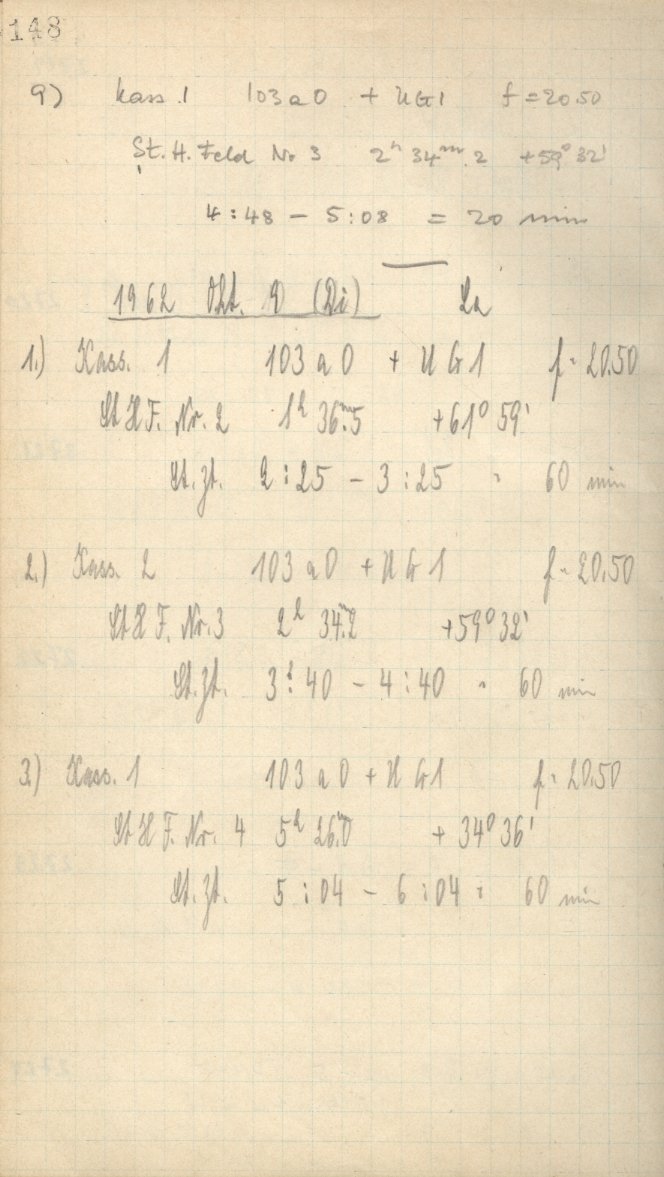 148
9) Kass. 1 103aO + UG1 f = 20.50
St. H. Feld No 3 2h 34m.2 +59° 32'
4:48 – 5:08 = 20 min
1962 Okt. 9 (Di) La
1.) Kass. 1 103 a O + U G 1 f = 20.50
St H F. Nr. 2 1h 36m.5 +61° 59'
St. Zt. 2:25 – 3:25 = 60 min
2.) Kass. 2 103 a O + U G 1 f = 20.50
St H F. Nr. 3 2h 34m.2 +59° 32'
St. Zt. 3:40 – 4:40 = 60 min
3.) Kass. 1 103 a O + U G 1 f = 20.50
St H F. Nr. 4 5h 26m.0 + 34° 36'
St. Zt. 5:04 – 6:04 = 60 min